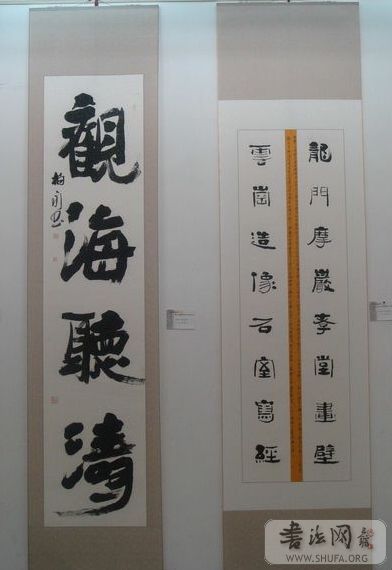 龍門摩巖孝堂畫壁
雲崗造像石室寫經
觀海聽濤
书法网
WWW.SHUFA.ORG